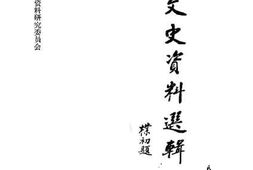 文史資料選輯
樸初題
資料研究委員会